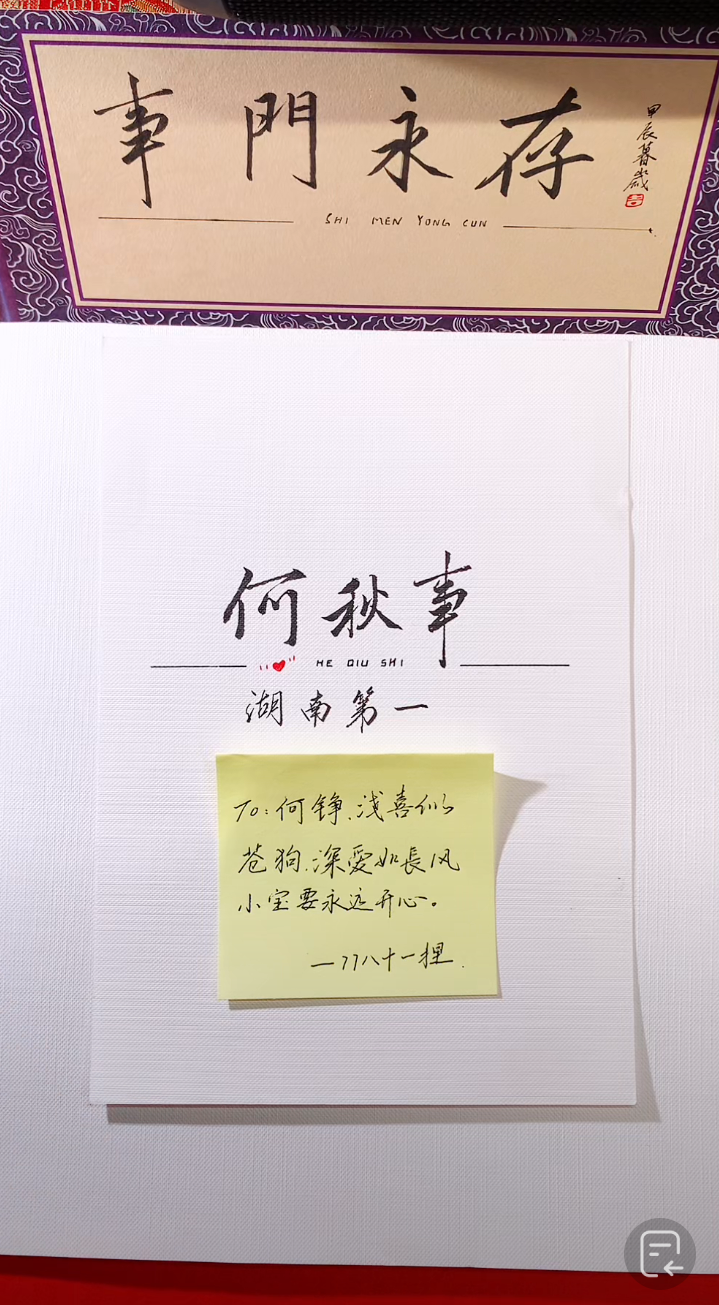 事門永存
甲辰暮歲
SHI MEN YONG CUN
何秋事
HE QIU SHI
湖南第一
To:何铮.浅喜似
苍狗.深愛如長风
小宝要永远开心。